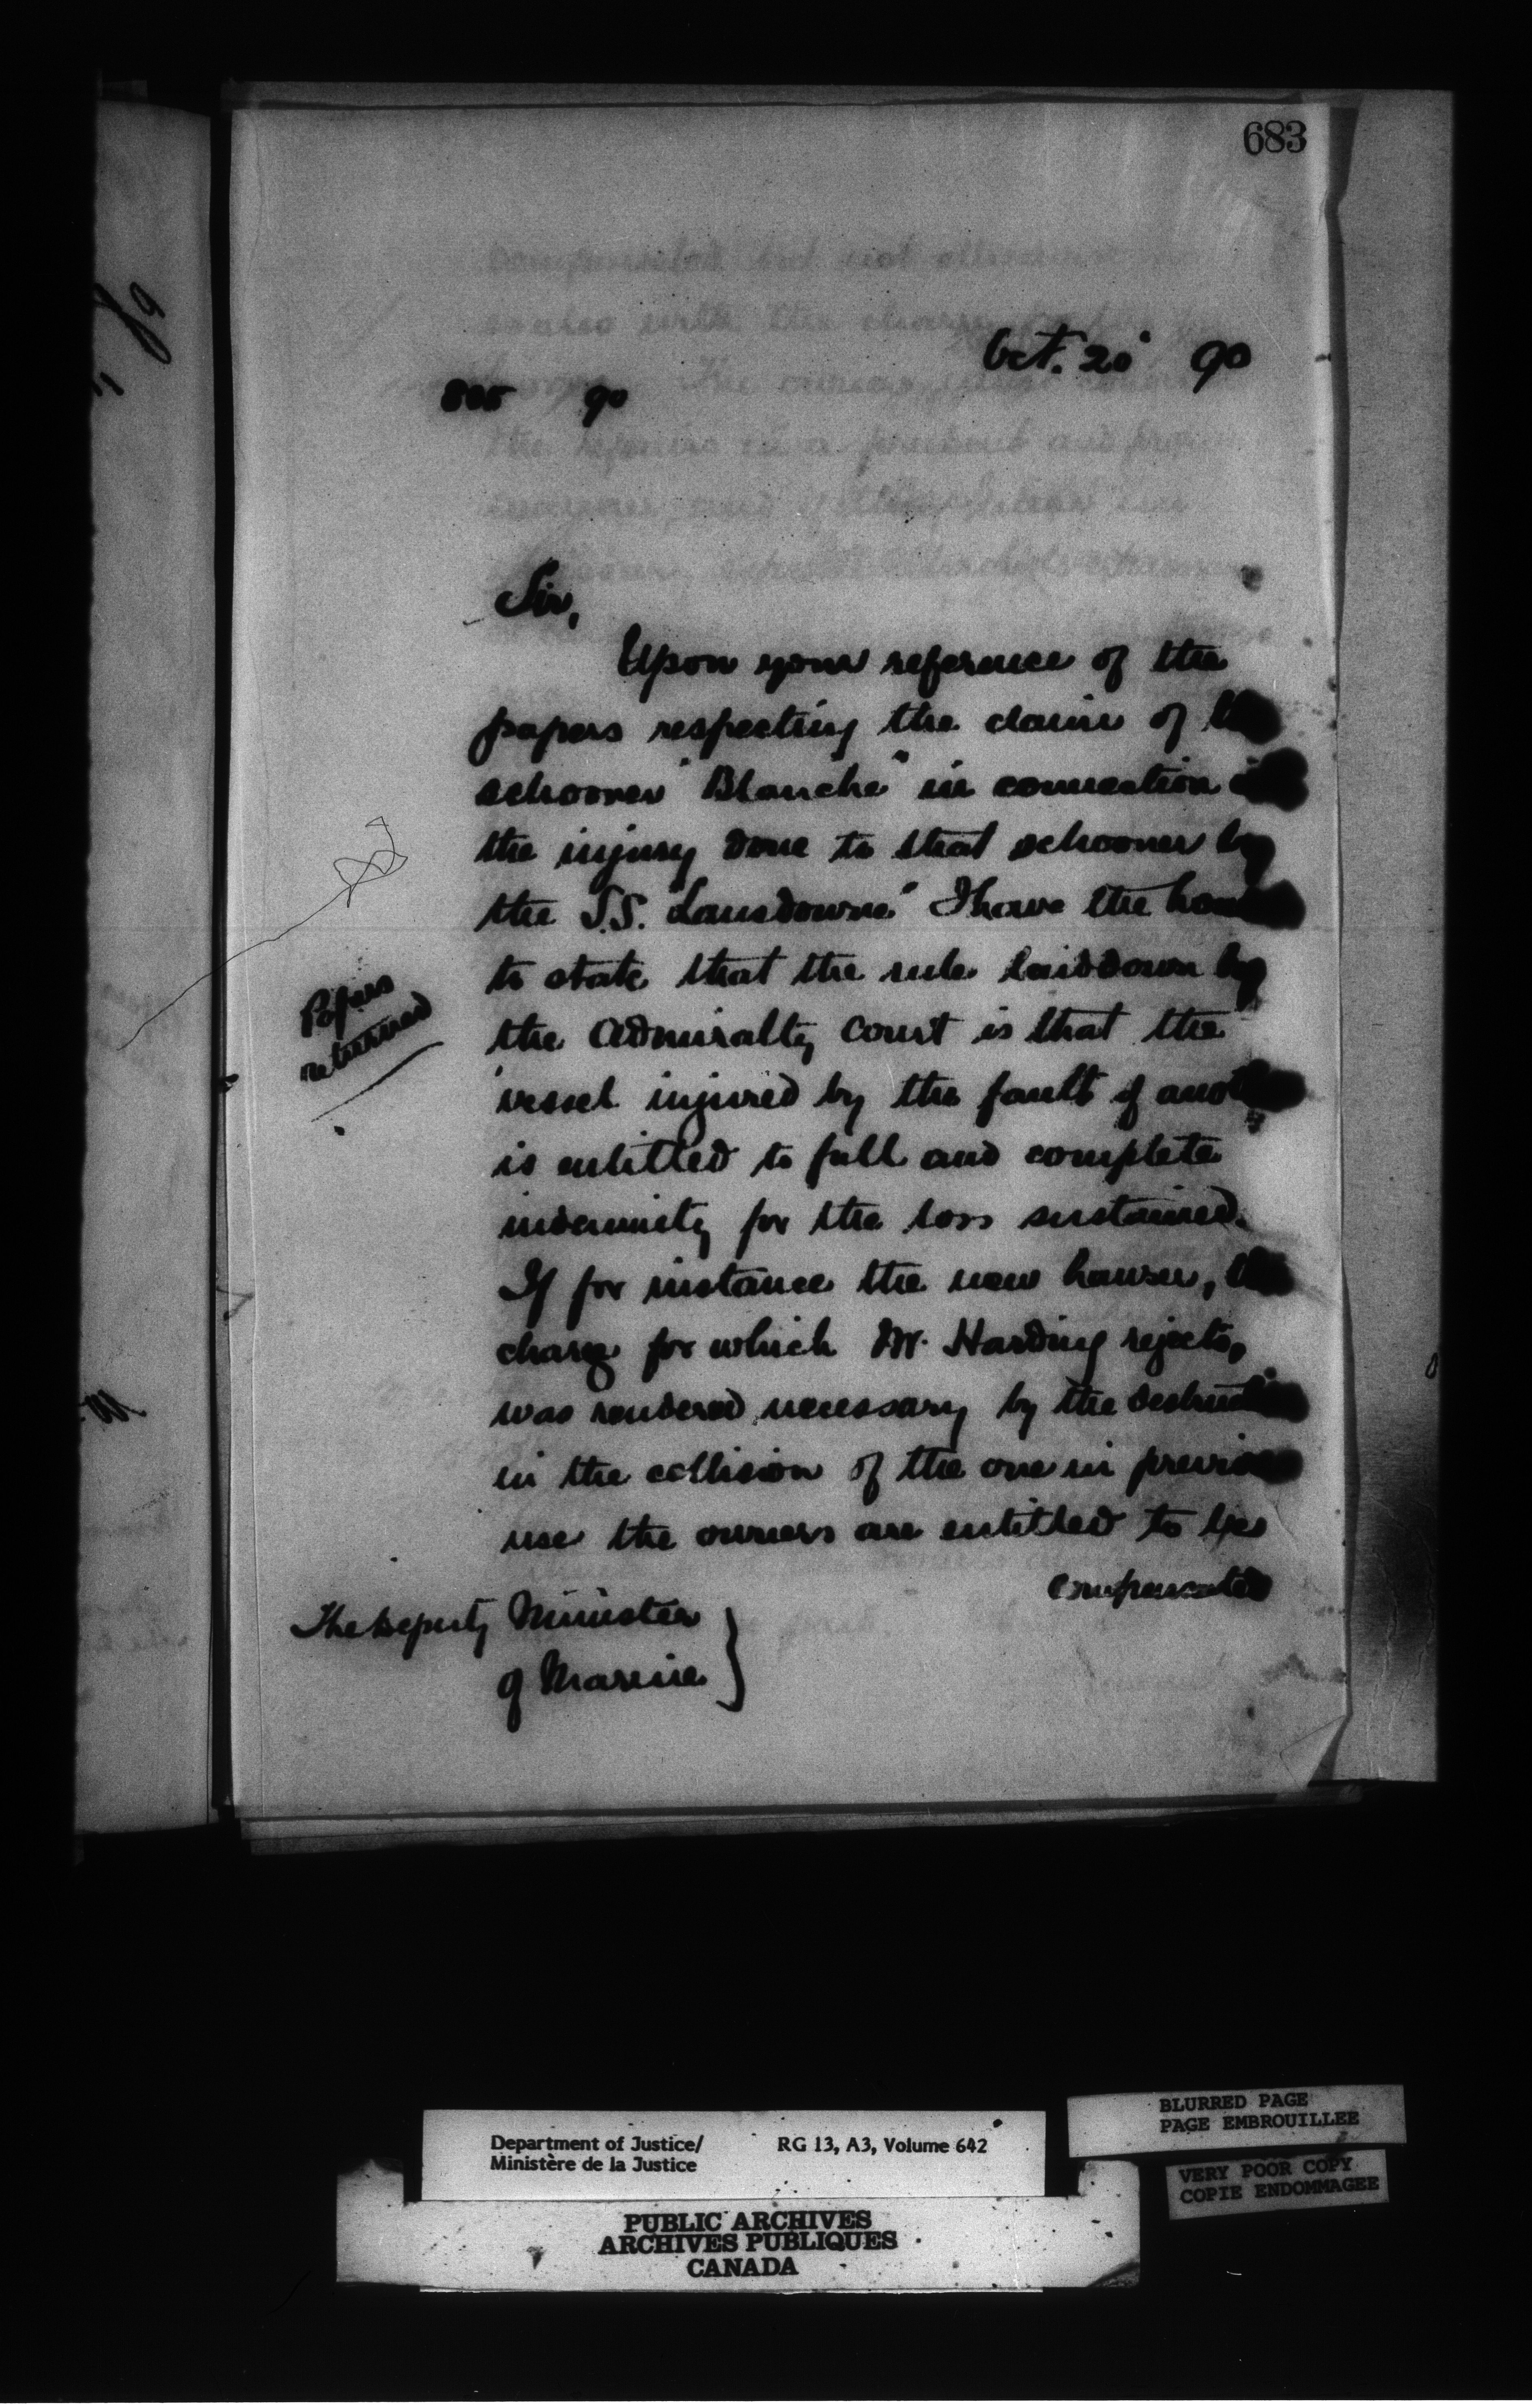 683
Oct. 20 90
805 90
Sir,
Upon your reference of the
papers respecting the claim of the
schooner "Blanche" in connection
the injury done to that schooner by
the S.S. Lansdowne" I have the honor
to state that the rule laid down by
the Admiralty Court is that the
vessel injured by the fault of another
is entitled to full and complete
indemnity for the loss sustained.
If for instance the new hawser, the
charge for which Mr. Harding rejects,
was rendered necessary by the destruction
in the collision of the one in previous
use the owners are entitled to be
compensated
Papers
returned
The Deputy Minister
of Marine
Department of Justice/ RG 13, A3, Volume 642
Ministère de la Justice
PUBLIC ARCHIVES
ARCHIVES PUBLIQUES
CANADA
BLURRED PAGE
PAGE EMBROUILLEE
VERY POOR COPY
COPIE ENDOMMAGEE